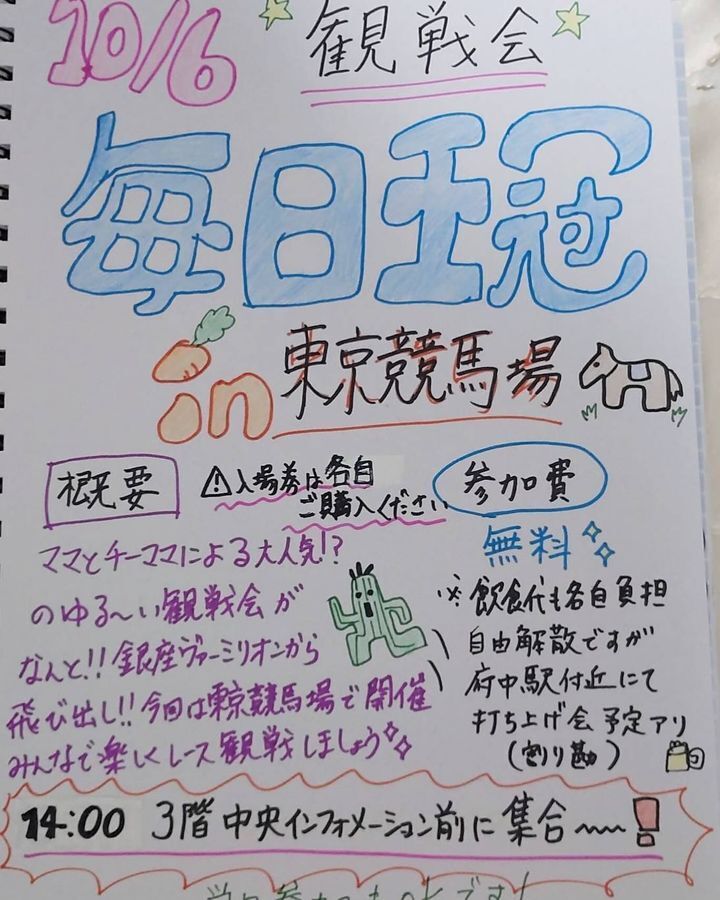 10/6 観戦会
毎日王冠
in 東京競馬場
概要
⚠入場券は各自
ご購入ください
ママとチーママによる大人気!?
のゆる〜い観戦会が
なんと!!銀座ヴァーミリオンから
飛び出し!!今回は東京競馬場で開催
みんなで楽しくレース観戦しましょう
参加費
無料
※飲食代も各自負担
自由解散ですが
府中駅付近にて
打ち上げ会予定アリ
(割り勘)
14:00 3階中央インフォメーション前に集合〜!